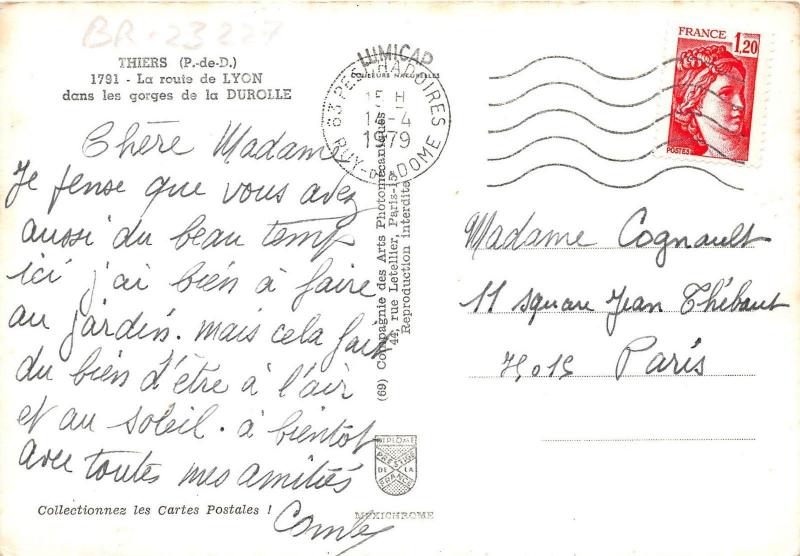 BR.23227
THIERS (P.-de-D.)
1791 - La route de LYON
dans les gorges de la DUROLLE
Chère Madame
Je pense que vous avez
aussi du beau temp
ici j'ai bien à faire
au jardin. mais cela fait
du bien d'être à l'air
et au soleil. à bientôt
avec toutes mes amitiés
Collectionnez les Cartes Postales !
LUMICAP
COULEURS NATURELLES
63 PESCHADOIRES
15 H
14-4
1979
PUY-DE-DOME
(69) Compagnie des Arts Photomécaniques
44, rue Letellier, Paris-15e
Reproduction interdite
DIPLOME
PRESTIGE
DE LA
FRANCE
MEXICHROME
FRANCE
1,20
POSTES
Madame Cognault
11 square Jean Thébaut
75015 Paris